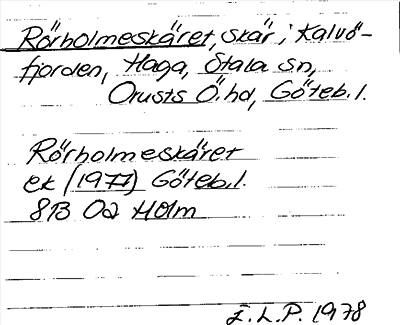 Rörholmeskäret, skär i Kalvö-
fjorden, Haga, Stala sn,
Orusts Ö. hd, Göteb. l.
Rörholmeskäret
ek (1977) Göteb. l.
8B 0a Holm
E.L.P. 1978